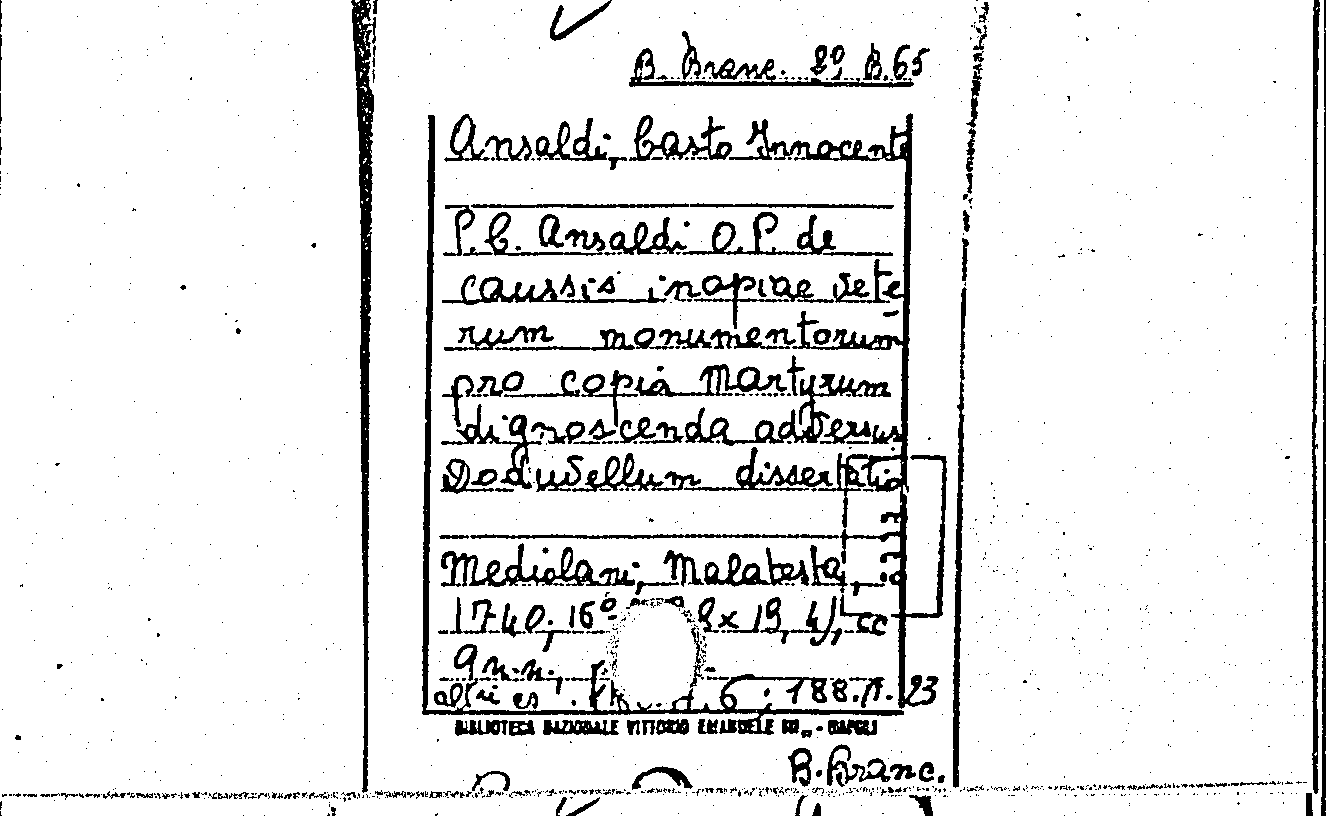 B. Branc. 2º B.65
Ansaldi, Casto Innocente
P.C. Ansaldi O.P. de
caussis inopiae vete
rum monumentorum
pro copia Martyrum
dignoscenda adversus
Doduvellum dissertatio
Mediolani, Malatesta,
1740; 16º x 19, 4), cc
9n.n.,
altri es 6; 188.A.23
BIBLIOTECA NAZIONALE VITTORIO EMANUELE III„ - NAPOLI
B.Branc.